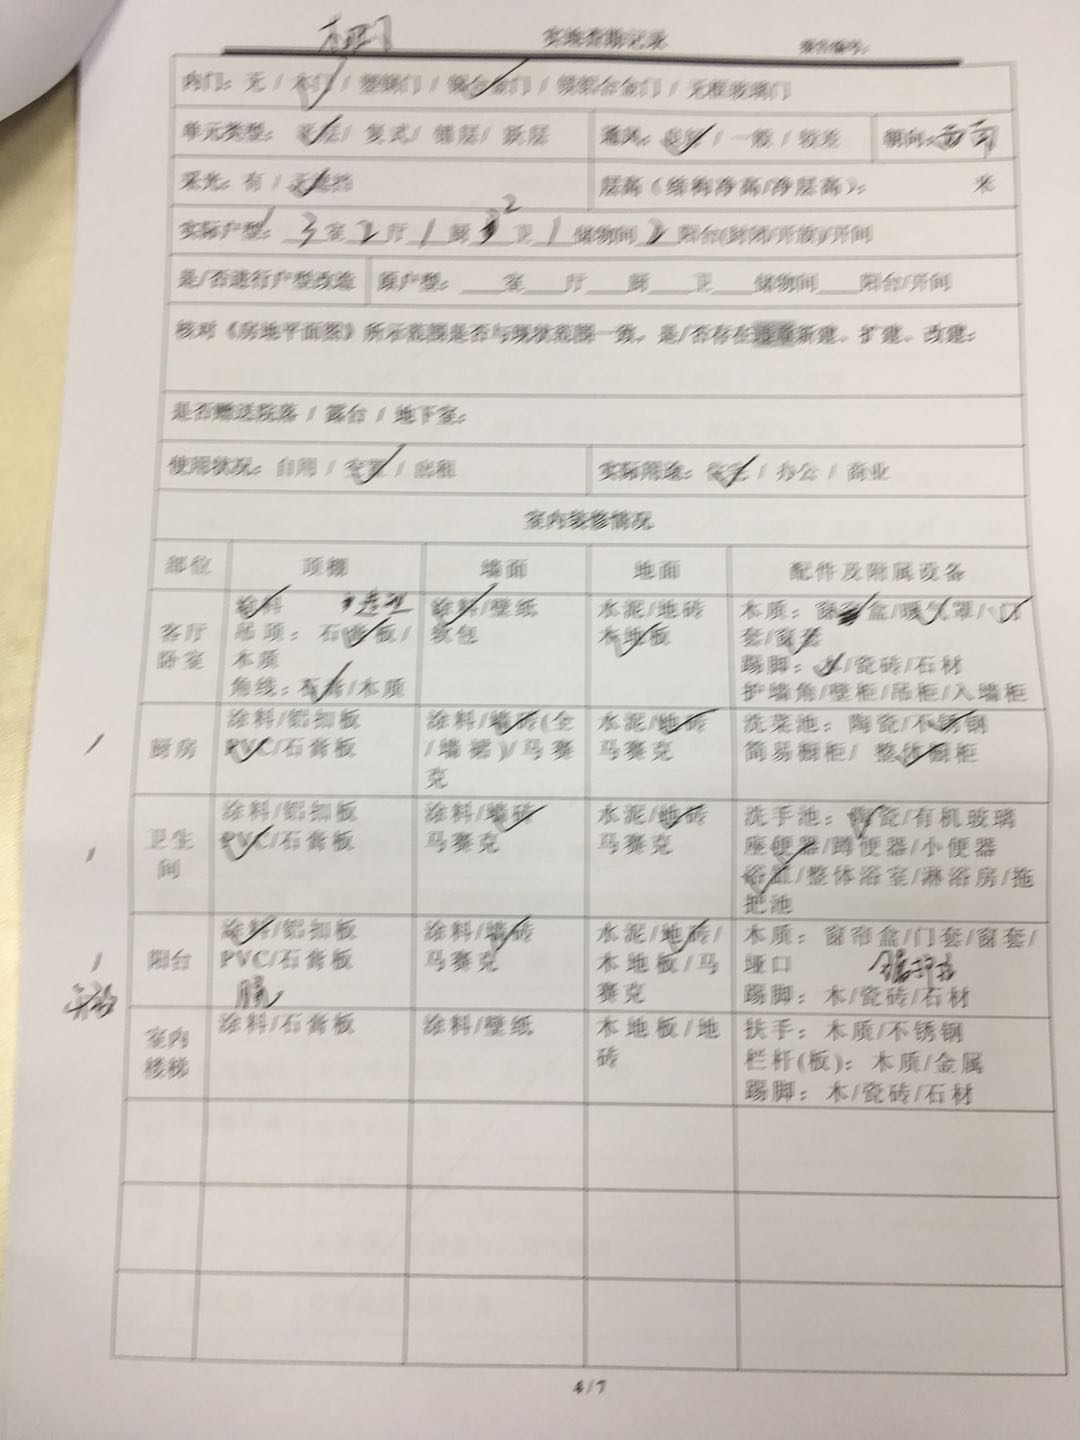 实地查勘记录 报告编号：
内门：无 / 木门 / 塑钢门 / 铝合金门 / 镁铝合金门 / 无框玻璃门
单元类型：平层/ 复式/ 错层/ 跃层 通风：良好 / 一般 / 较差 朝向：西南
采光：有 / 无遮挡 层高（结构净高/净层高）： 米
实际户型：3室2厅1厨2卫1储物间2阳台(封闭/开放)/开间
是/否进行户型改造 原户型：___室___厅___厨___卫___储物间___阳台/开间
核对《房地平面图》所示范围是否与现状范围一致，是/否存在新建、扩建、改建：
是否赠送院落 / 露台 / 地下室：
使用状况：自用 / 空置 / 出租 实际用途：住宅 / 办公 / 商业
室内装修情况
部位 顶棚 墙面 地面 配件及附属设备
客厅卧室 涂料 造型 涂料/壁纸 水泥/地砖 木质：窗帘盒/暖气罩/门
吊顶：石膏板/ 软包 木地板 套/窗套
木质 踢脚：木/瓷砖/石材
角线：石膏/木质 护墙角/壁柜/吊柜/入墙柜
厨房 涂料/铝扣板 涂料/墙砖(全 水泥/地砖 洗菜池：陶瓷/不锈钢
PVC/石膏板 /墙裙)/马赛 马赛克 简易橱柜/ 整体橱柜
克
卫生间 涂料/铝扣板 涂料/墙砖 水泥/地砖 洗手池：陶瓷/有机玻璃
PVC/石膏板 马赛克 马赛克 座便器/蹲便器/小便器
浴缸/整体浴室/淋浴房/拖
把池
阳台 涂料/铝扣板 涂料/墙砖 水泥/地砖/ 木质：窗帘盒/门套/窗套/
PVC/石膏板 马赛克 木地板/马 垭口
赛克 踢脚：木/瓷砖/石材
室内楼梯 涂料/石膏板 涂料/壁纸 木地板/地 扶手：木质/不锈钢
砖 栏杆(板)：木质/金属
踢脚：木/瓷砖/石材
4/7